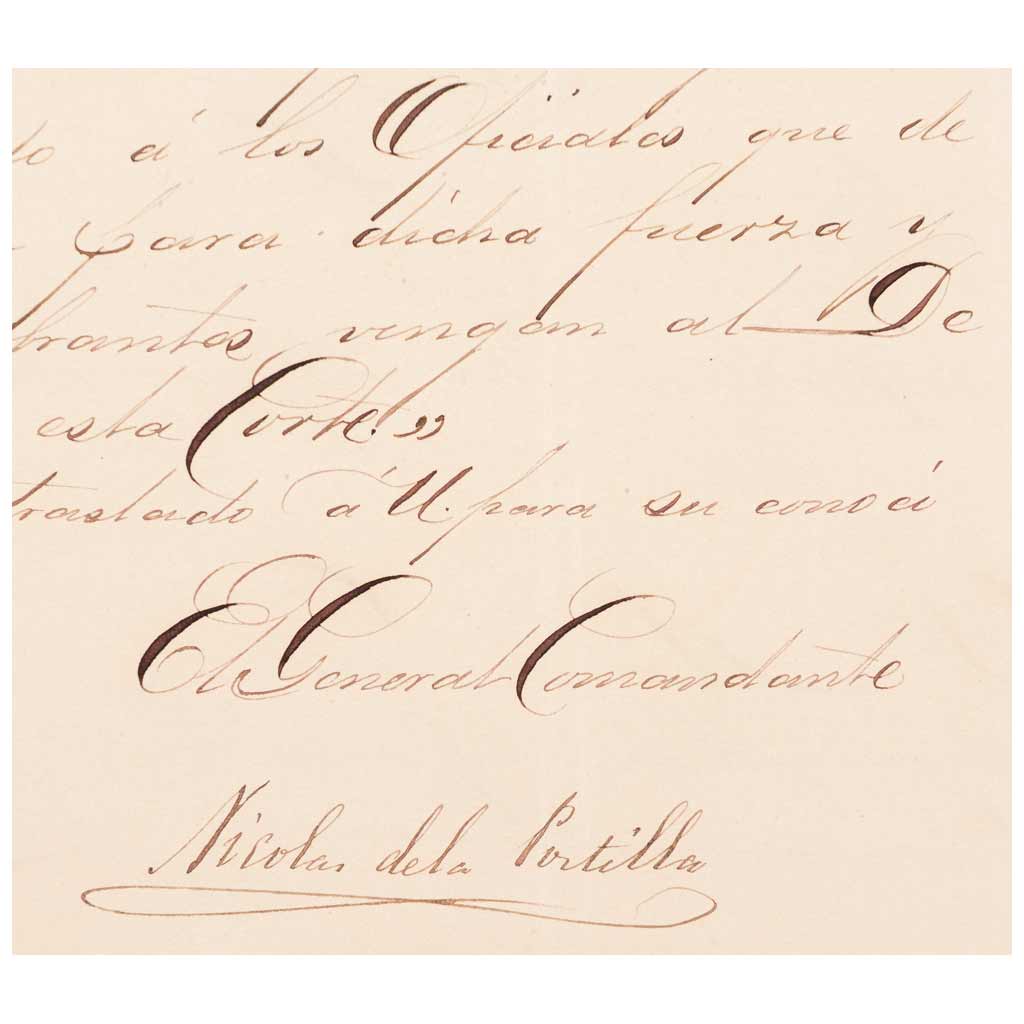 do á los Oficiales que de
para dicha fuerza y
brantes vengan al De
esta Corte.,,
traslado á U. para su conoci
El General Comandante
Nicolas de la Portilla